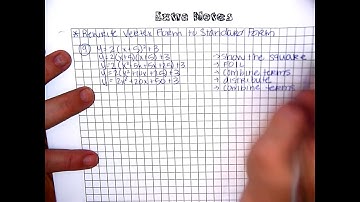 Extra Notes
* Rewrite Vertex Form to Standard Form
y = 2(x+5)²+3
y = 2(x+5)(x+5)+3 → show the square
y = 2(x²+5x+5x+25)+3 → FOIL
y = 2(x²+10x+25)+3 → combine terms
y = 2x²+20x+50+3 → distribute
→ combine terms